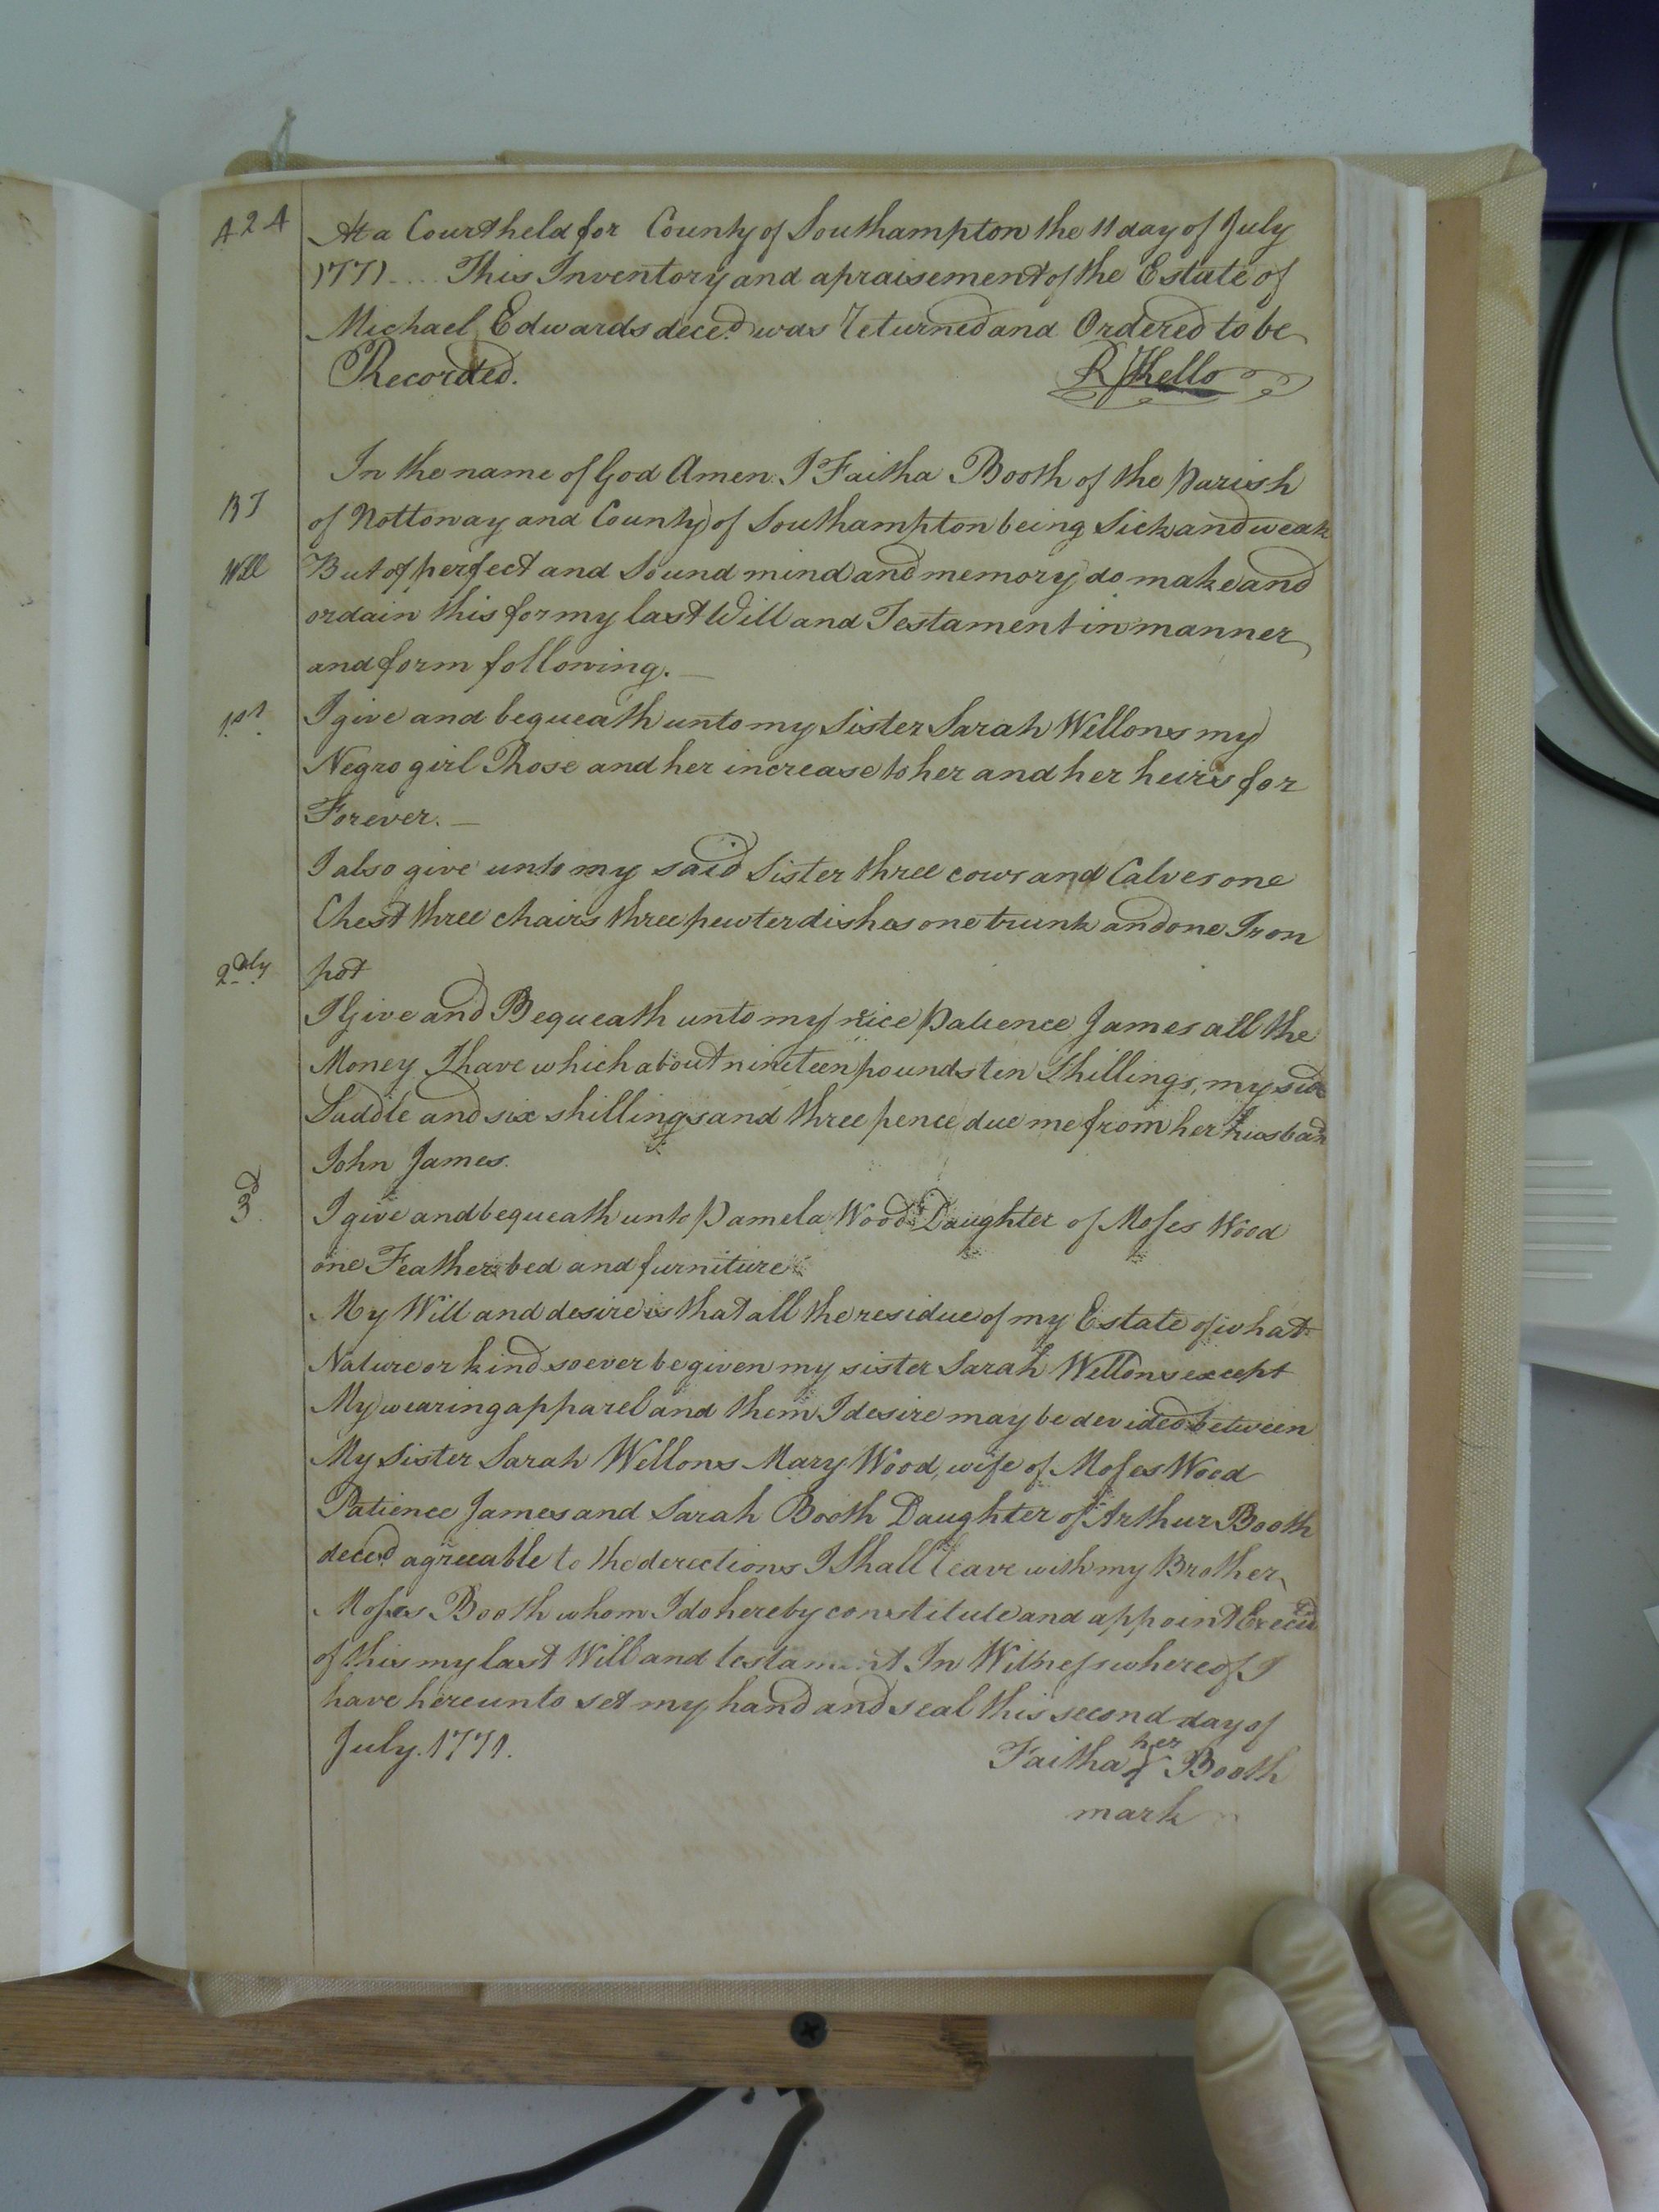 424
At a Court held for County of Southampton the 11 day of July
1771.... This Inventory and apraisement of the Estate of
Michael Edwards deced was Returned and Ordered to be
Recorded. R Kello
In the name of God Amen. I Faitha Booth of the Parish
of Nottoway and County of Southampton being Sick and weak
Will But of perfect and Sound mind and memory do make and
ordain this for my last Will and Testament in manner
and form following.
1st I give and bequeath unto my Sister Sarah Wellons my
Negro girl Rose and her increase to her and her heirs for
Forever.
I also give unto my said Sister three cows and Calves one
Chest three chairs three pewter dishes one trunk and one Iron
2dly pot
I Give and Bequeath unto my nice Patience James all the
Money I have which about nineteen pounds ten Shillings, my side
Saddle and six shillings and three pence due me from her husban
John James.
3d I give and bequeath unto Pamela Wood Daughter of Moses Wood
one Feather bed and furniture
My Will and desire is that all the residue of my Estate of what
Nature or kind soever be given my sister Sarah Wellons except
My wearing apparel and them I desire may be devided between
My Sister Sarah Wellons Mary Wood, wife of Moses Wood
Patience James and Sarah Booth Daughter of Arthur Booth
deced agreeable to the derections I Shall leave with my Brother
Moses Booth whom I do hereby constitute and appoint
of this my last Will and testament In Witness whereof I
have hereunto set my hand and seal this second day of
July. 1771. Faitha her X Booth
mark